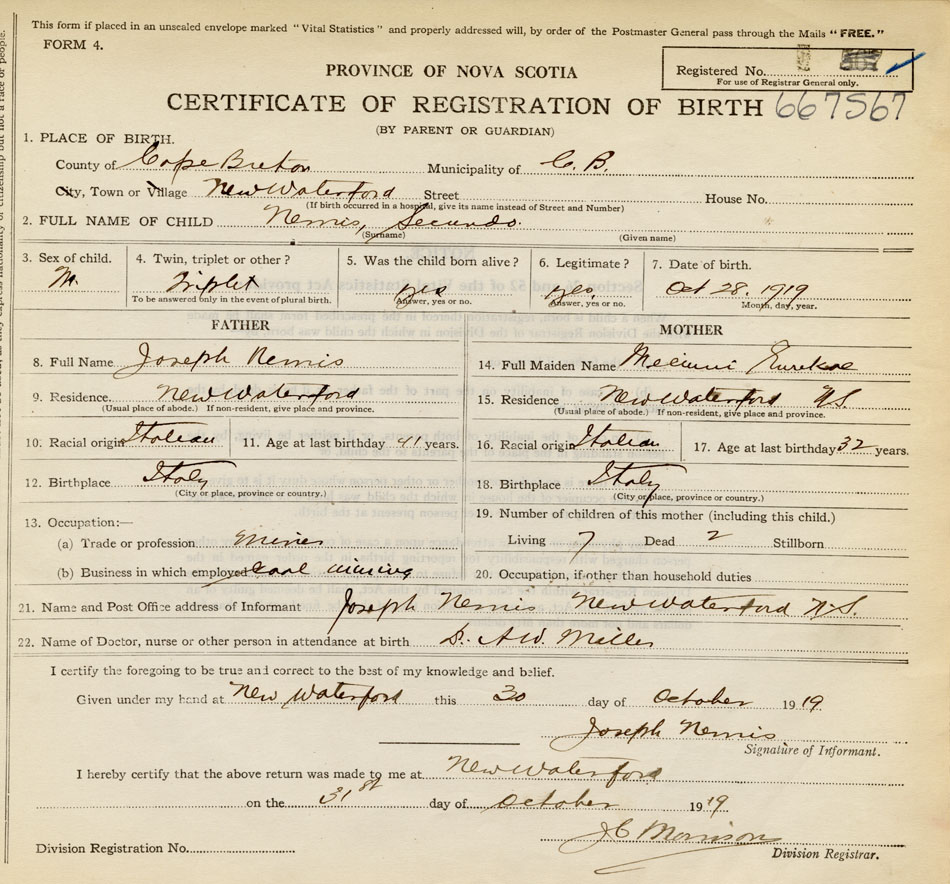 This form if placed in an unsealed envelope marked "Vital Statistics" and properly addressed will, by order of the Postmaster General pass through the Mails "FREE."
FORM 4.
Registered No.
For use of Registrar General only.
PROVINCE OF NOVA SCOTIA
CERTIFICATE OF REGISTRATION OF BIRTH 667567
(BY PARENT OR GUARDIAN)
1. PLACE OF BIRTH.
County of Cape Breton Municipality of C. B.
City, Town or Village New Waterford Street House No.
(If birth occurred in a hospital, give its name instead of Street and Number)
2. FULL NAME OF CHILD Nemis, Secundo.
(Surname) (Given name)
3. Sex of child. 4. Twin, triplet or other? 5. Was the child born alive? 6. Legitimate? 7. Date of birth.
M. Triplet yes yes. Oct 28. 1919
To be answered only in the event of plural birth. Answer, yes or no. Answer, yes or no. Month, day, year.
FATHER MOTHER
8. Full Name Joseph Nemis 14. Full Maiden Name
9. Residence. New Waterford 15. Residence New Waterford N.S.
(Usual place of abode.) If non-resident, give place and province. (Usual place of abode.) If non-resident, give place and province.
10. Racial origin Italian 11. Age at last birthday 41 years. 16. Racial origin Italian 17. Age at last birthday 32 years.
12. Birthplace Italy 18. Birthplace Italy
(City or place, province or country.) (City or place, province or country.)
13. Occupation:— 19. Number of children of this mother (including this child.)
(a) Trade or profession Miner Living 7 Dead 2 Stillborn
(b) Business in which employed Coal mining 20. Occupation, if other than household duties
21. Name and Post Office address of Informant Joseph Nemis New Waterford N.S.
22. Name of Doctor, nurse or other person in attendance at birth Dr. A.W. Miller
I certify the foregoing to be true and correct to the best of my knowledge and belief.
Given under my hand at New Waterford this 30 day of October 1919
Joseph Nemis
Signature of Informant.
I hereby certify that the above return was made to me at New Waterford
on the 31st day of October 1919
J C Morrison
Division Registration No. Division Registrar.